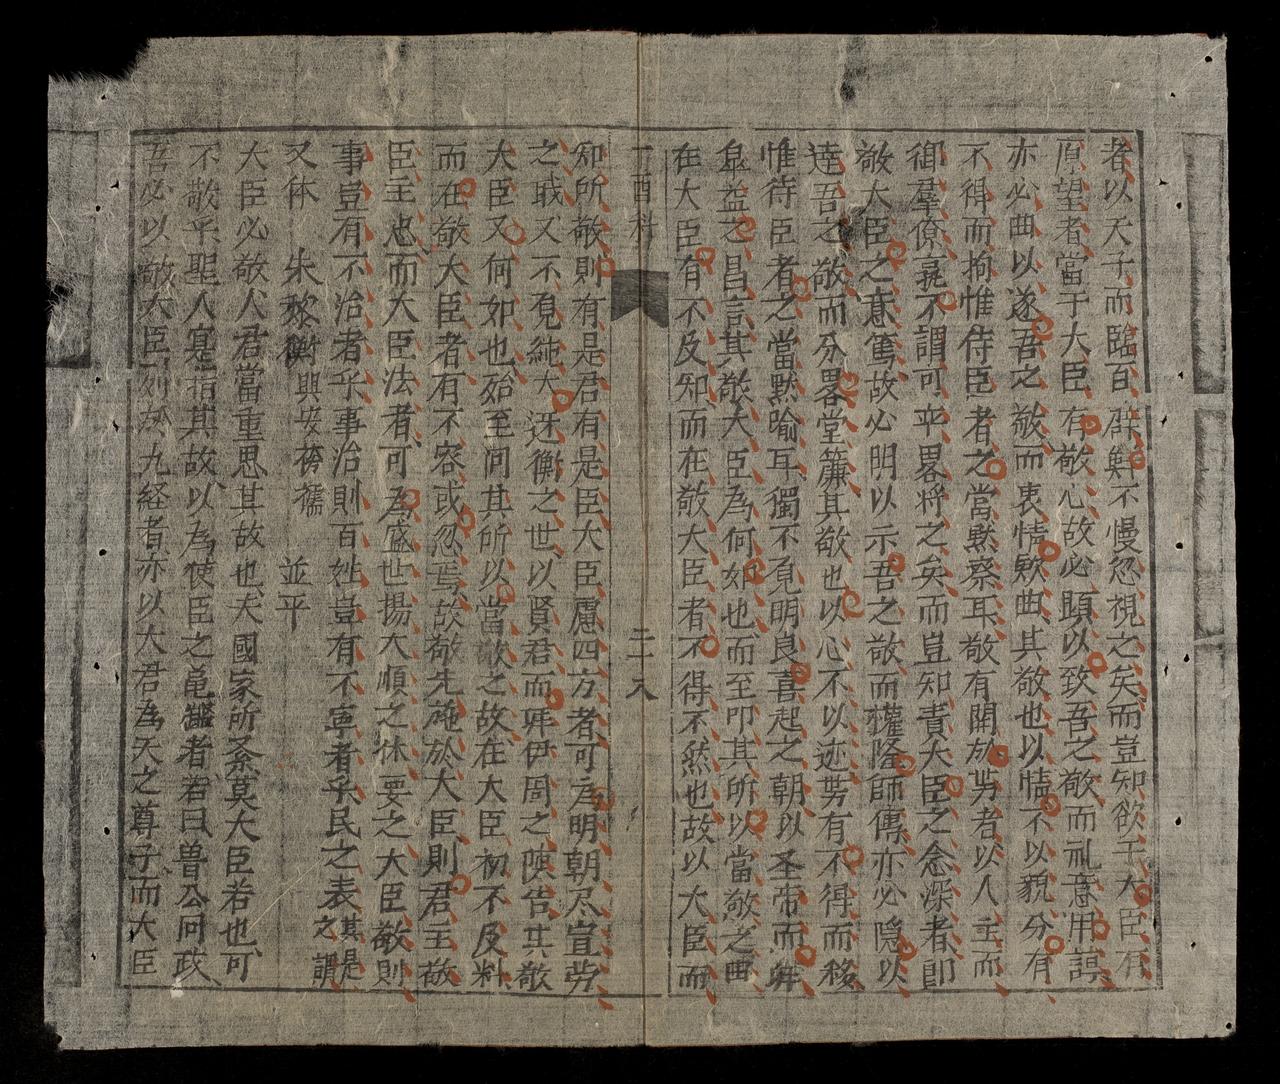 者以天子而臨百辟鮮不慢忽視之矣而豈知欲于大臣有
願望者當于大臣有敬心故必顯以致吾之敬而礼意用諄
亦必曲以遂吾之敬而衷情欵曲其敬也以情不以貌分有
不得而拘惟侍臣者之當黙察耳敬有開於労者以人主而
御羣僚衰不謂可平畧将之矣而豈知責大臣之念深者即
敬大臣之意篤故必明以示吾之敬而權隆師傳亦必隐以
達吾之敬而分畧堂簾其敬也以心不以迹势有不得而移
惟待臣者之當黙喻耳獨不見明良喜起之朝以圣帝而觧
皐益之昌言其敬大臣為何如也而至叩其所以當敬之由
在大臣有不反知而在敬大臣者不得不然也故以大臣而
一酉科 二十八
知所敬則有是君有是臣大臣慮四方者可為明朝尽宣劳
之戢又不見純大迓衡之世以賢君而拜伊周之陳告其敬
大臣又何如也殆至問其所以當敬之故在大臣初不反料
而在敬大臣者有不容或忽焉故敬先施於大臣則君主敬
臣主忠而大臣法者可為盛世揚大順之休要之大臣敬則
事豈有不治者乎事治則百姓豈有不寧者乎民之表其是之謂
又体 朱黎衡 興安 蒋儒 並平
大臣必敬人君當重思其故也夫國家所系莫大臣若也可
不敬乎聖人寔指其故以為使臣之毫蠶者若曰昔公问政
吾必以敬大臣列於九経者亦以大君為天之尊子而大臣